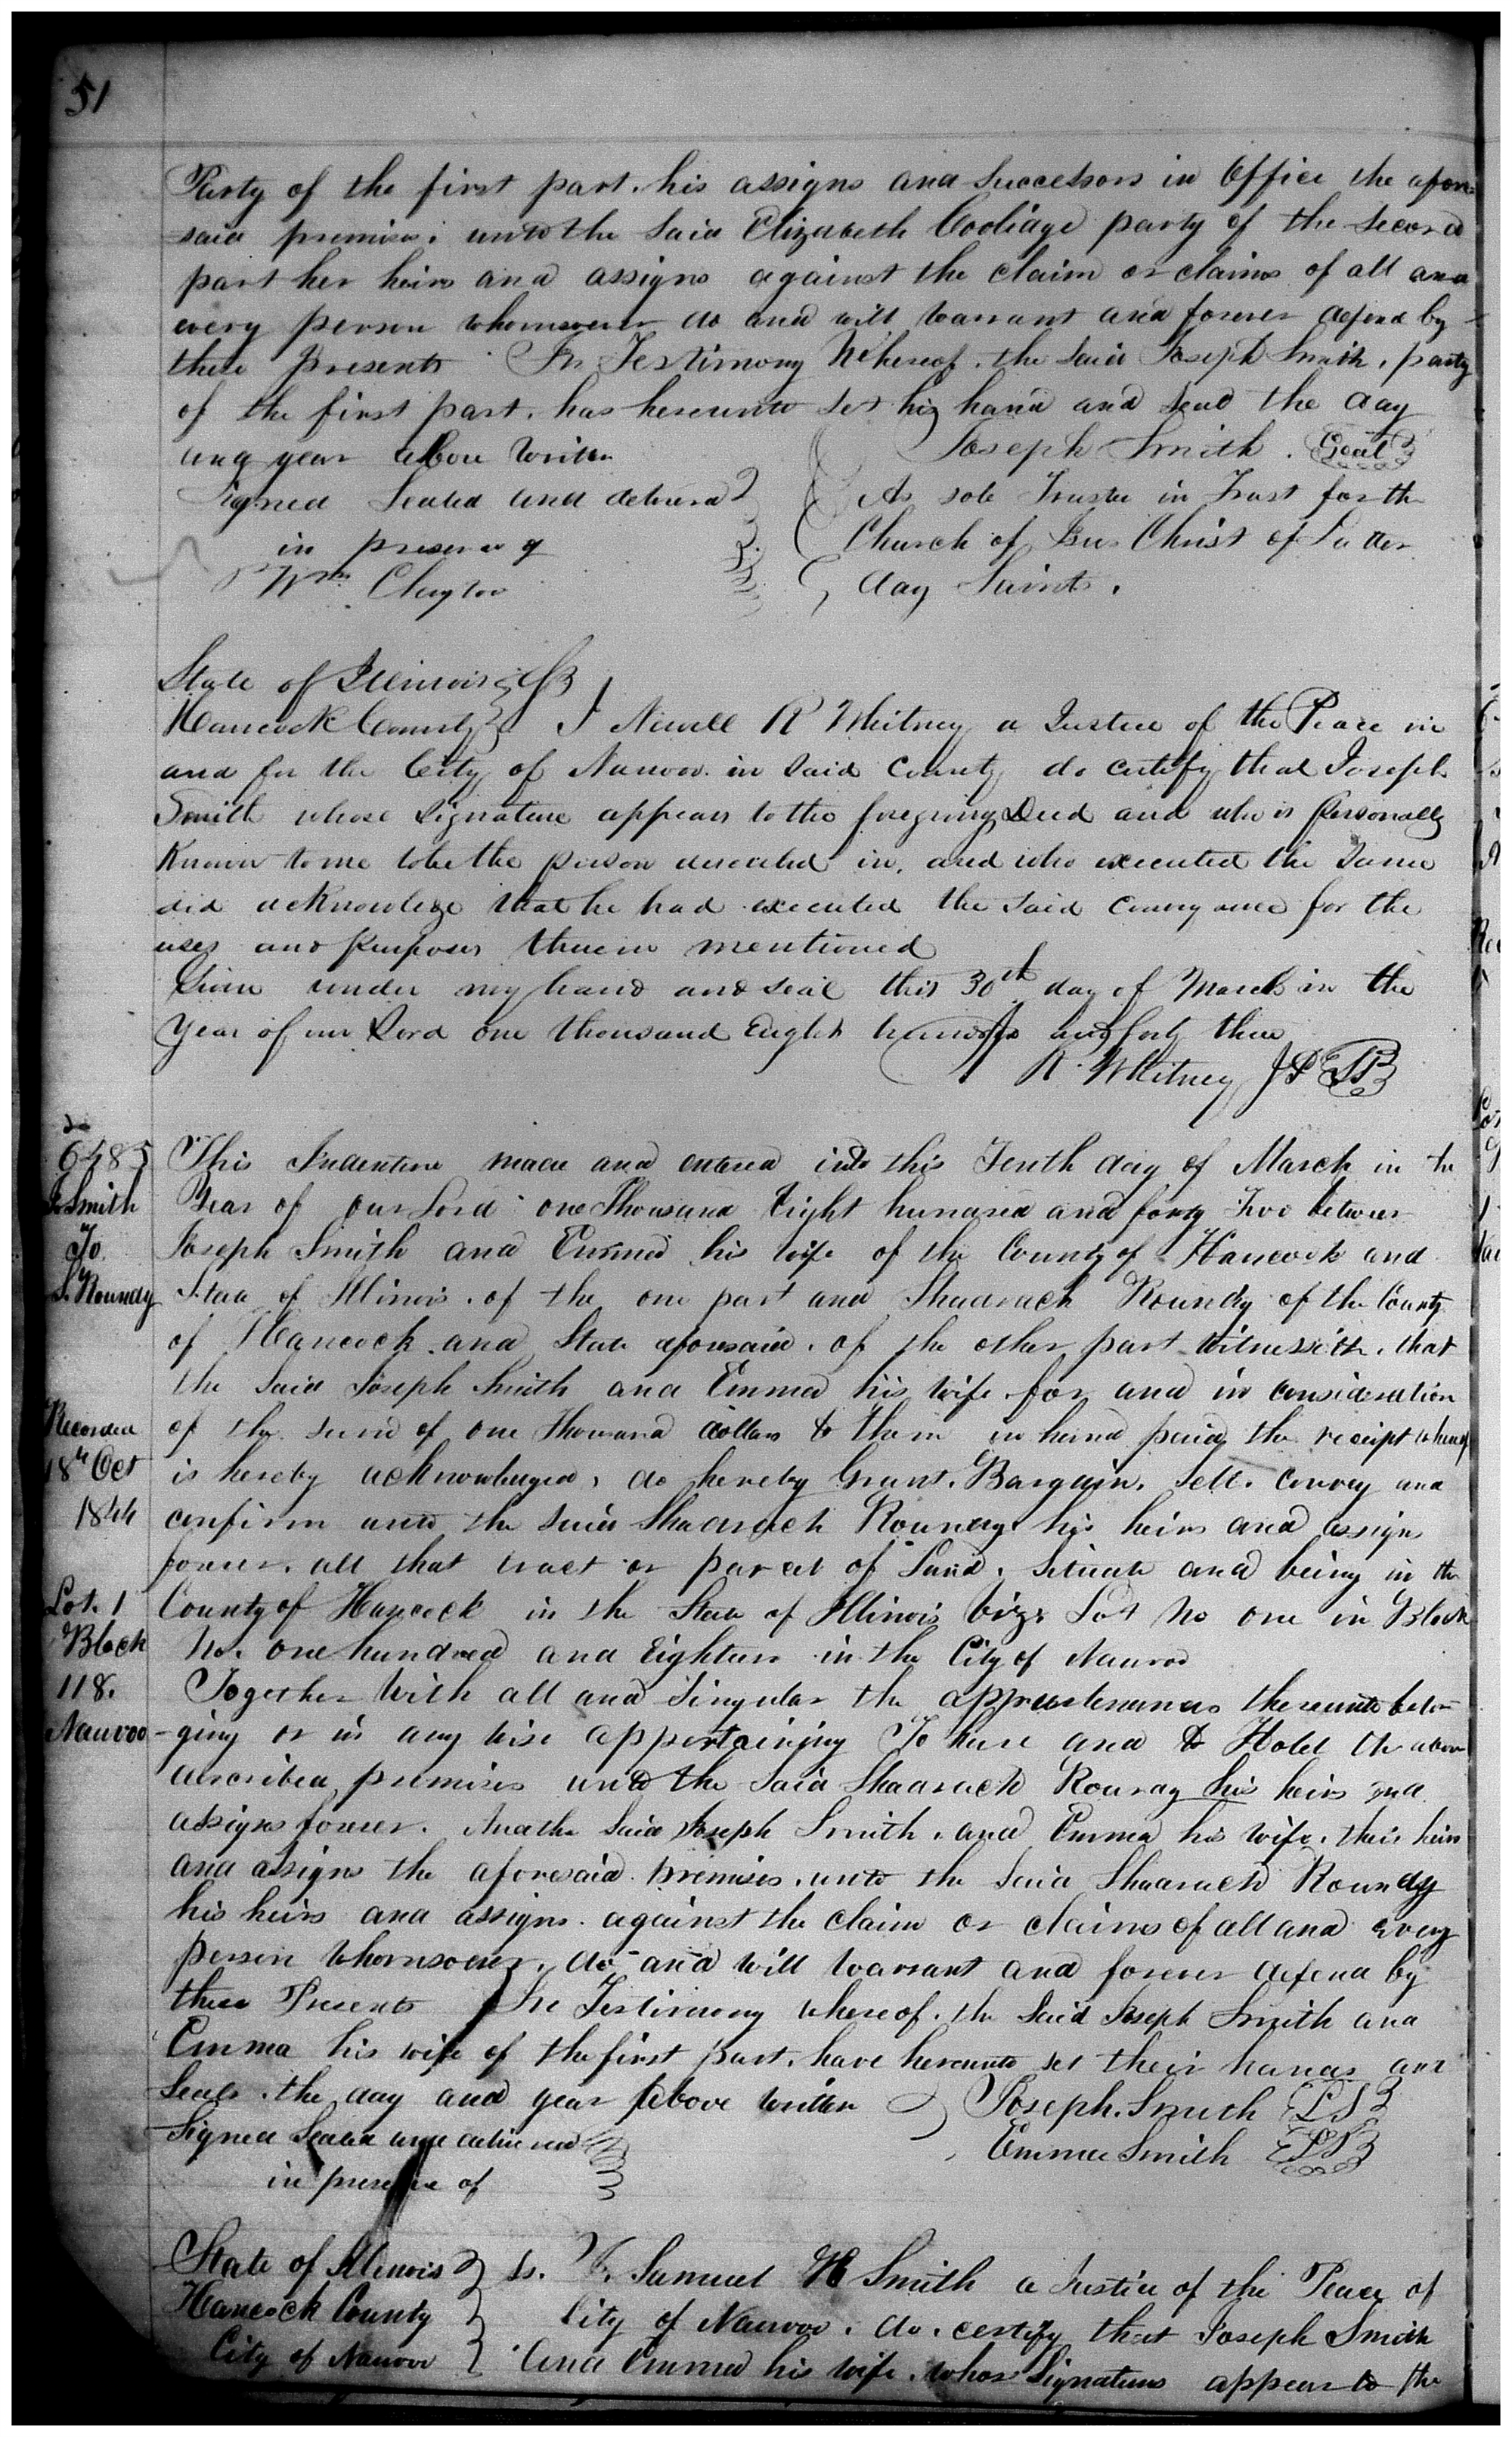 51
Party of the first part. his assigns and Successors in Office the afore
said premises unto the Said Elizabeth Coolidge party of the second
part her heirs and assigns against the claim or claims of all and
every person whomsoever do and will warrant and forever defend by
these presents In Testimony Whereof. the Said Joseph Smith, party
of the first part. has hereunto set his hand and seal the day
and year above Written
Joseph Smith. Seal
Signed Sealed and delivered
As sole Trustee in Trust for the
in presence of
Church of Jesus Christ of Latter
Wm Clayton
day Saints.
State of Illinois
Hancock County I Newell K Whitney a Justice of the Peace in
and for the City of Nauvoo in Said County do certify that Joseph
Smith whose Signature appears to the foregoing Deed and who is personally
Known to me to be the person described in, and who executed the Same
did acknowledge that he had executed the Said conveyance for the
uses and purposes therein mentioned
Given under my hand and seal this 30th day of March in the
Year of our Lord one thousand Eight hundred and forty three
K. Whitney JP LS
6485
J. Smith
To
S. Roundy
This Indenture made and entered into this Tenth day of March in the
Year of our Lord one Thousand Eight hundred and forty Two between
Joseph Smith and Emma his wife of the County of Hancock and
State of Illinois. of the one part and Shadrach Roundy of the County
of Hancock and State aforesaid. of the other part Witnesseth. that
the Said Joseph Smith and Emma his wife for and in consideration
Recorded
18th Oct
1844
of the sum of one Thousand dollars to them in hand paid the receipt whereof
is hereby acknowledged, do hereby Grant. Bargain. Sell. convey and
confirm unto the said Shadrach Roundy his heirs and assigns
forever. all that tract or parcel of Land. Situate and being in the
Lot. 1
Block
118.
Nauvoo
County of Hancock in the State of Illinois viz: Lot No one in Block
No. one hundred and Eighteen in the City of Nauvoo
Together With all and Singular the appurtenances thereunto belon
-ging or in any wise appertaining To have and to Hold the above
described premises unto the Said Shadrach Roundy his heirs and
assigns forever. And the Said Joseph Smith. and Emma his wife. their heirs
and assigns the aforesaid premises. unto the Said Shadrach Roundy
his heirs and assigns. against the claim or claims of all and every
person Whomsoever. do and will warrant and forever defend by
these Presents In Testimony whereof. the Said Joseph Smith and
Emma his wife of the first part. have hereunto set their hands and
Seals. the day and year above written
Joseph. Smith LS
Signed Sealed and delivered
Emma Smith LS
in presence of
State of Illinois ss. I. Samuel H Smith a Justice of the Peace of
Hancock County City of Nauvoo. do. certify that Joseph Smith
City of Nauvoo And Emma his wife. whos Signatures appear to the